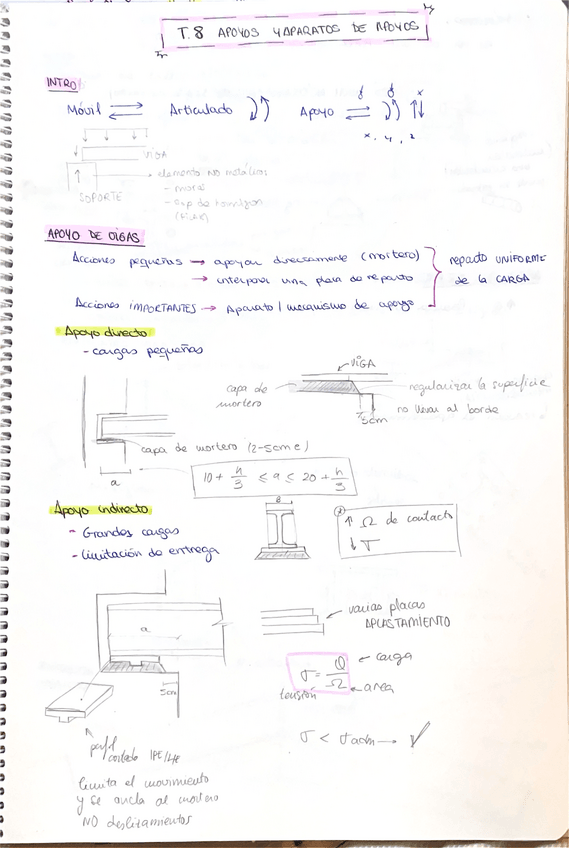 T.8 APOYOS Y APARATOS DE APOYOS
INTRO
Móvil Articulado Apoyo
x, y, z
VIGA
SOPORTE
elementos NO metálicos
- muros
- de hormigón
APOYO DE VIGAS
Acciones pequeñas → apoyan directamente (mortero)
→ interponer una placa de reparto
Acciones IMPORTANTES → Aparato / mecanismo de apoyo
reparto UNIFORME
de la CARGA
Apoyo directo
- cargas pequeñas
VIGA
capa de
mortero
regularizar la superficie
no llevar al borde
5cm
capa de mortero (2-5cm e)
a
10 + h/3 ≤ a ≤ 20 + h/3
Apoyo indirecto
- Grandes cargas
- Limitación de entrega
B
↑ Ω de contacto
↓ σ
a
5cm
varias placas
APLASTAMIENTO
σ = Q/Ω
carga
área
tensión
σ < σ adm → ✓
perfil
cortado IPE/
limita el movimiento
y se ancla al mortero
NO deslizamientos